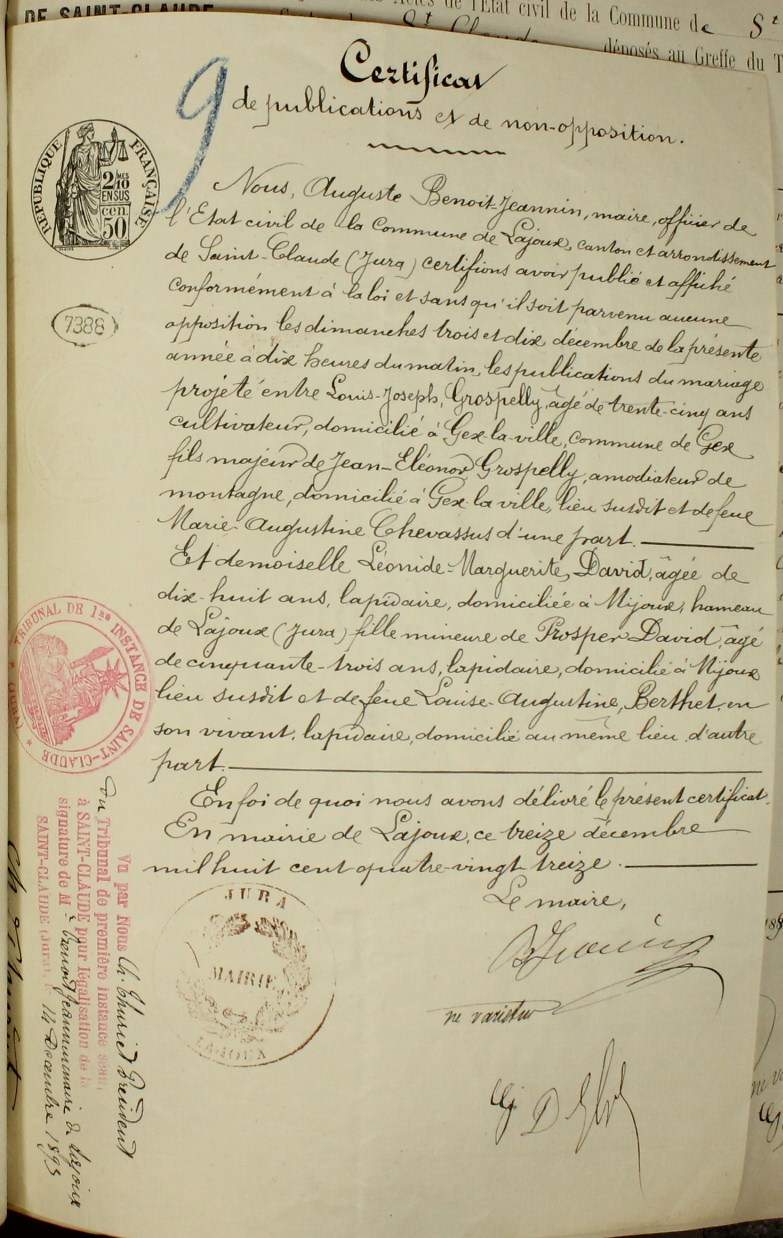 DE SAINT-CLAUDE
de l'Etat civil de la Commune de St
déposés au Greffe du T
9
Certificat
de publications et de non-opposition.
RÉPUBLIQUE FRANÇAISE
2/10 MES
EN SUS
50 cen
7388
Nous, Auguste Benoit-Jeannin, maire, officier de
l'Etat civil de la Commune de Lajoux, canton et arrondissement
de Saint-Claude (Jura) certifions avoir publié et affiché
conformément à la loi et sans qu'il soit parvenu aucune
opposition les dimanches trois et dix décembre de la présente
année à dix heures du matin, les publications du mariage
projeté entre Louis-Joseph, Grospelly, âgé de trente-cinq ans
cultivateur, domicilié à Gex-la-ville, commune de Gex
fils majeur de Jean-Eléonor Grospelly, amodiateur de
montagne, domicilié à Gex-la-ville, lieu susdit et de feue
Marie-Augustine Chevassus d'une part.
Et demoiselle Léonide-Marguerite, David, âgée de
dix-huit ans, lapidaire, domiciliée à Mijoux, hameau
de Lajoux (Jura) fille mineure de Prosper David, âgé
de cinquante-trois ans, lapidaire, domicilié à Mijoux
lieu susdit et de feue Louise-Augustine, Berthet, en
son vivant, lapidaire, domicilié au même lieu, d'autre
part.
En foi de quoi nous avons délivré le présent certificat.
En mairie de Lajoux, ce treize décembre
mil huit cent quatre-vingt treize.
Le maire,
ne varietur
JURA
MAIRIE
LAJOUX
TRIBUNAL DE 1re INSTANCE DE SAINT-CLAUDE
(JURA)
Vu par Nous Ch. Thuriet Président
du Tribunal de première instance séant
à SAINT-CLAUDE pour légalisation de la
signature de M. Benoit Jeannin maire de Lajoux
SAINT-CLAUDE (Jura), 14 Décembre 1893
Ch Thuriet